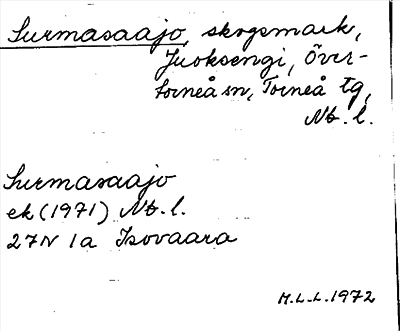 Surmasaajo, skogsmark,
Juoksengi, Över-
torneå sn, Torneå tg,
Nb. l.
Surmasaajo
ek (1971) Nb. l.
27N 1a Isovaara
M.L-L. 1972